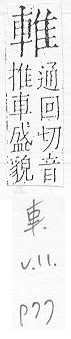 輽
通回切音
推車盛貌
車.
v.11.
P777